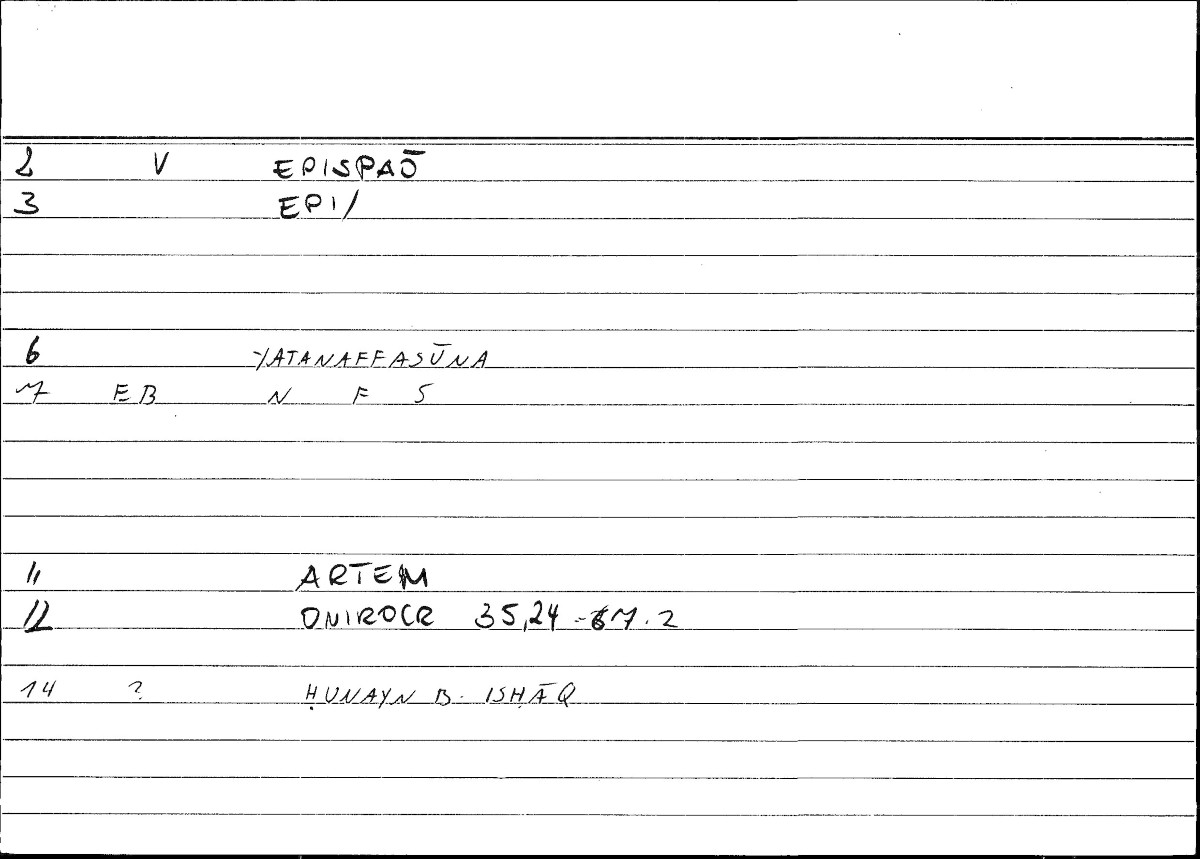 2 V EPISPAŌ
3 EPI/
6 YATANAFFASŪNA
7 EB N F S
11 ARTEM
12 ONIROCR 35,24 - 67.2
14 ? ḤUNAYN B. ISḤĀQ